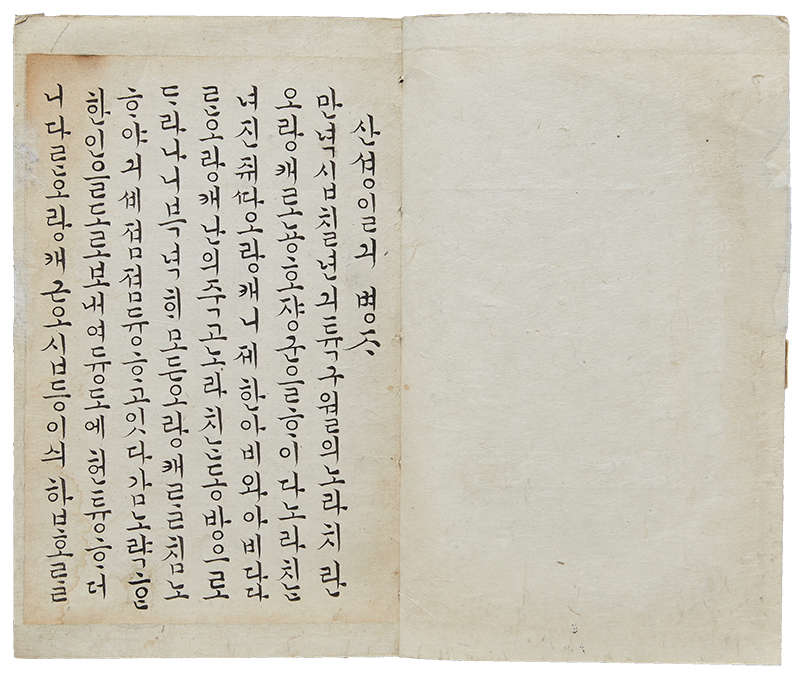 산셩일긔 병ᄌᆞ
만녁십칠년긔튝구월의노라치란
오랑캐로뇽호쟝군을ᄒᆞ이다노라치ᄂᆞᆫ
녀진쥬ᄯᅡ오랑캐니제한아비와아비다다
ᄅᆞᆫ오랑캐난의죽고노라치ᄂᆞᆫ동방으로
ᄃᆞ라나니북녁희모든오랑캐ᄅᆞᆯ침노
ᄒᆞ야긔셰졈졈듕ᄒᆞ고잇다감노략ᄒᆞᆫ
한인을도로보내여듕도에헌튱ᄒᆞ더
니다ᄅᆞᆫ오랑캐근오십등이싀하